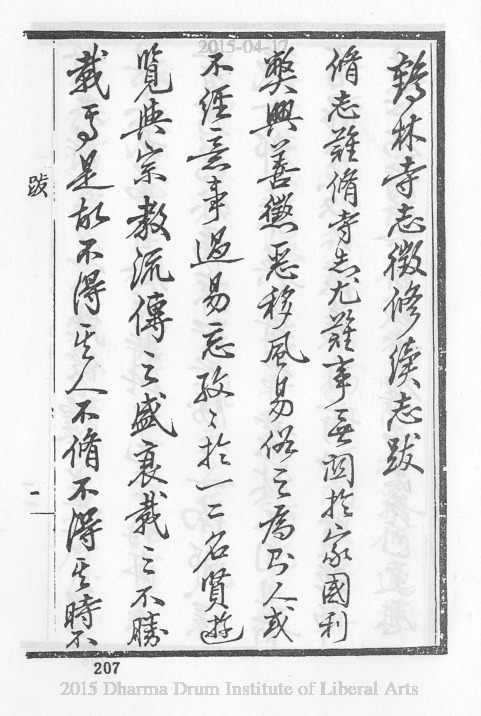 2015-04-17
鶴林寺志徵修續志跋
脩志難脩寺志尤難事無關於家國利
獘興善懲惡移風易俗之為人或
不經意事過易忘孜〻於一二名賢遊
覽與宗教流傳之盛衰載之不勝
載焉是故不得其人不脩不得其時不
跋
一
207
2015 Dharma Drum Institute of Liberal Arts